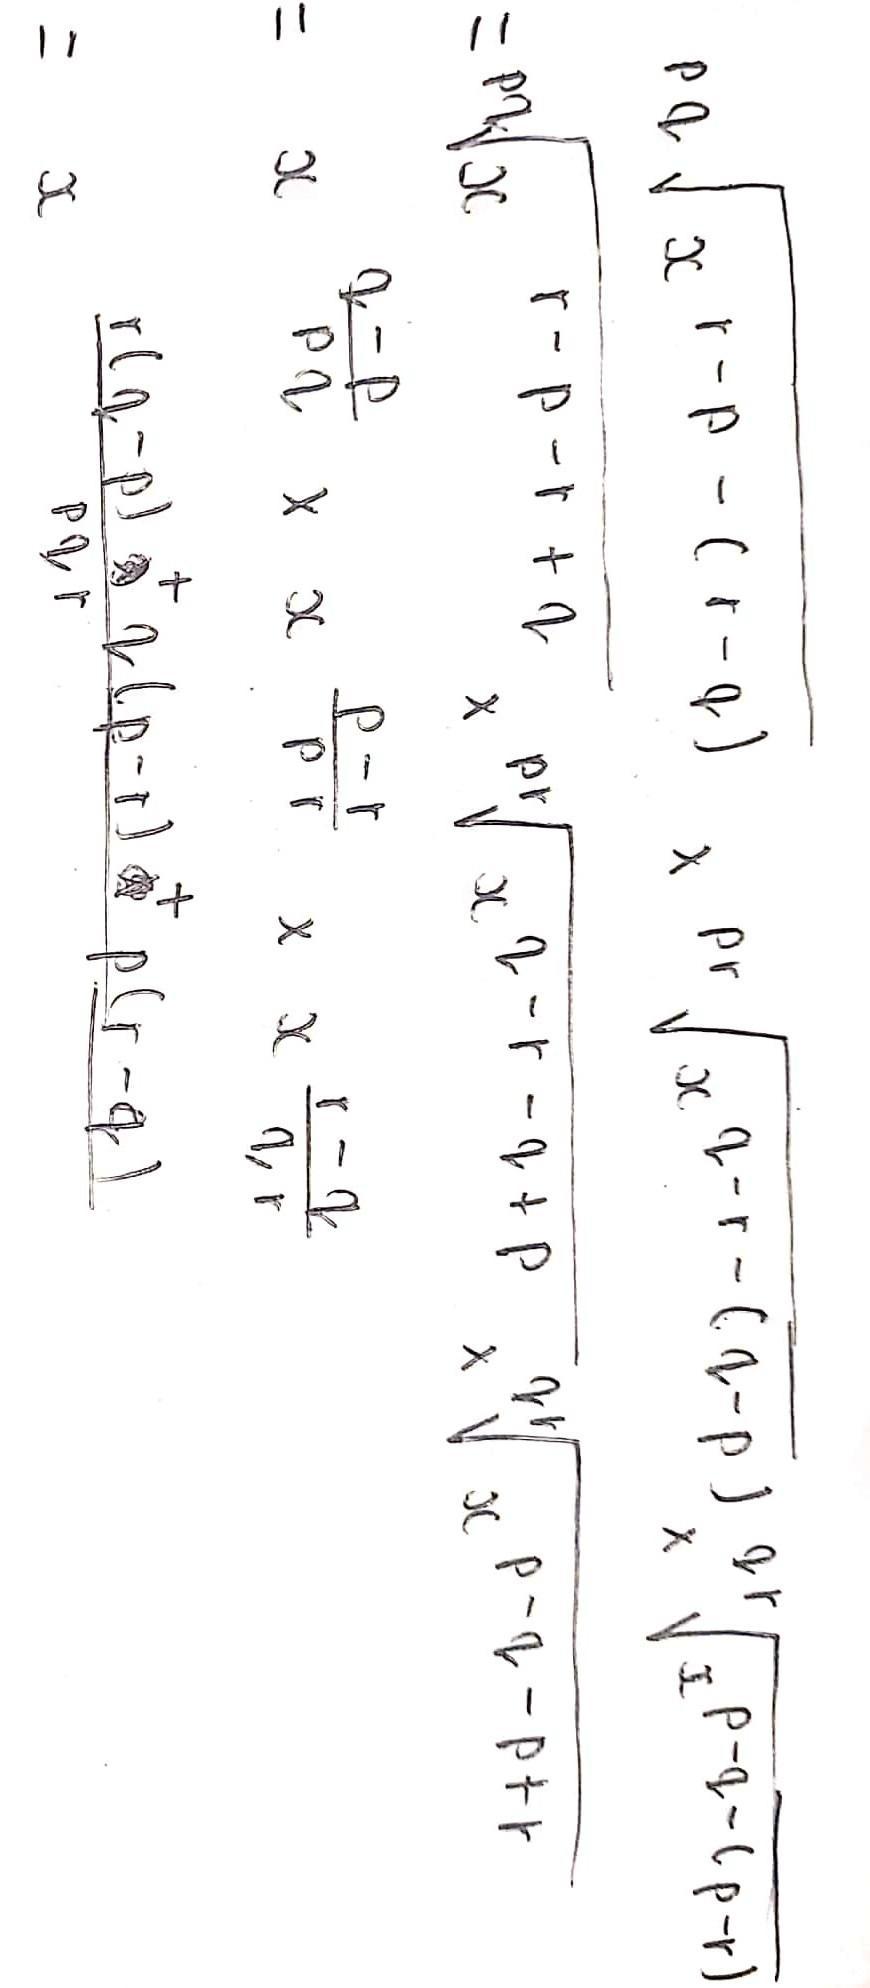 pq√(x^(r-p-(r-q))) × pr√(x^(q-r-(q-p))) × qr√(x^(p-q-(p-r)))
= pq√(x^(r-p-r+q)) × pr√(x^(q-r-q+p)) × qr√(x^(p-q-p+r))
= x^((q-p)/pq) × x^((p-r)/pr) × x^((r-q)/qr)
= x^((r(q-p) + q(p-r) + p(r-q))/pqr)